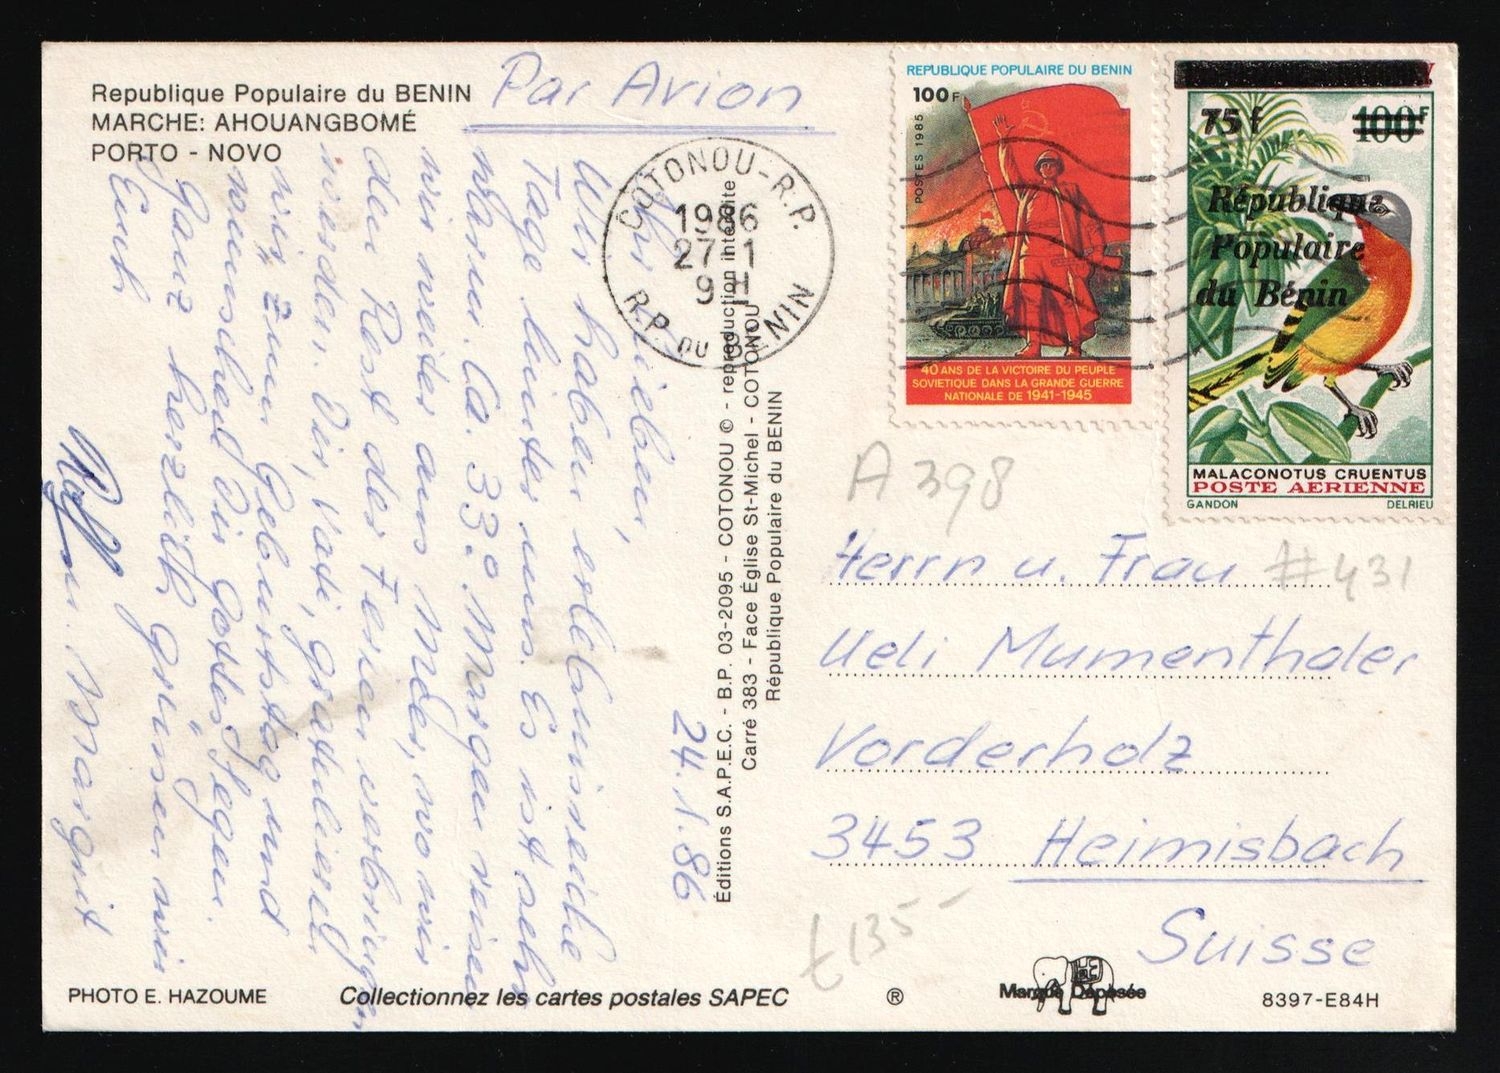 Republique Populaire du BENIN
MARCHE: AHOUANGBOMÉ
PORTO - NOVO
Par Avion
COTONOU-R.P.
1986
27 1
9 H
R.P. DU BENIN
REPUBLIQUE POPULAIRE DU BENIN
100F
POSTES 1985
40 ANS DE LA VICTOIRE DU PEUPLE
SOVIETIQUE DANS LA GRANDE GUERRE
NATIONALE DE 1941-1945
75f
100F
République
Populaire
du Bénin
MALACONOTUS CRUENTUS
POSTE AERIENNE
GANDON DELRIEU
24.1.86
Ihr Lieben,
Wir haben erlebnisreiche
Tage hinter uns. Es ist sehr
warm. Ca. 33° Morgen reisen
wir weiter ans Meer, wo wir
den Rest der Ferien verbringen
werden. Dir, Vati, gratulieren
wir zum Geburtstag und
wünschen Dir Gottes Segen.
Ganz herzlich grüssen wir
Euch
Margrit
Éditions S.A.P.E.C. - B.P. 03-2095 - COTONOU © - reproduction interdite
Carré 383 - Face Église St-Michel - COTONOU
République Populaire du BENIN
A398
#431
Herrn u. Frau
Ueli Mumenthaler
Vorderholz
3453 Heimisbach
Suisse
£135-
PHOTO E. HAZOUME
Collectionnez les cartes postales SAPEC
®
Marque Déposée
8397-E84H